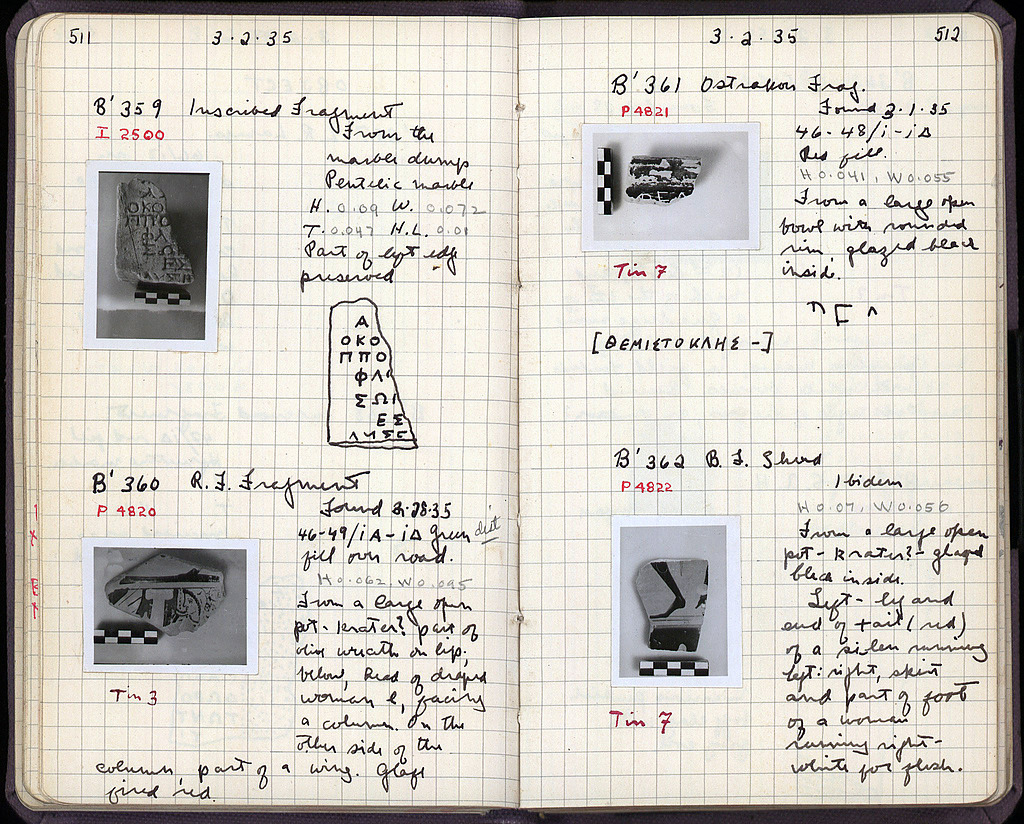 511
3·2·35
B' 359 Inscribed Fragment
I 2500
From the
marble dump
Pentelic marble
H. 0.09 W. 0.072
T. 0.047 H.L. 0.01
Part of left edge
preserved
ΟΚΟ
ΠΠΟ
Α
ΟΚΟ
ΠΠΟ
ΦΛ
ΣΩΙ
ΕΣ
B' 360 R.F. Fragment
P 4820
Found 2·28·35
46-49/ιΑ-ιΔ Green dirt
fill over road.
H 0.062, W 0.095
From a large open
pot - krater? part of
olive wreath on lip;
below, head of draped
woman l, facing
a column. On the
other side of the
column, part of a wing. Glaze
fired red.
Tin 3
3·2·35
512
B' 361 Ostrakon Frag.
P 4821
Found 3·1·35
46-48/ι-ιΔ
Red fill.
H 0.041, W 0.055
From a large open
bowl with rounded
rim, glazed black
inside.
Tin 7
[ΘΕΜΙΣΤΟΚΛΗΣ -]
B' 362 B.F. Sherd
P 4822
Ibidem
H 0.07, W 0.056
From a large open
pot - krater? - glazed
black inside.
Left - leg and
end of tail (red)
of a silen running
left: right, skirt
and part of foot
of a woman
running right -
white for flesh.
Tin 7